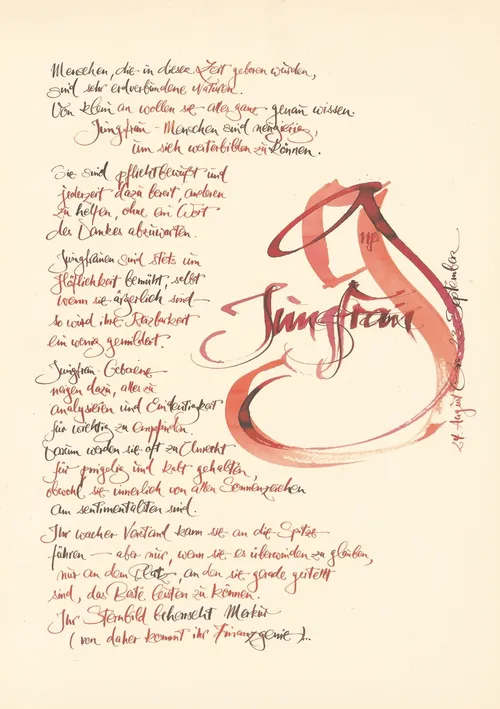 Menschen, die in dieser Zeit geboren wurden,
sind sehr erdverbundene Naturen.
Von klein an wollen sie alles ganz genau wissen.
Jungfrau - Menschen sind neugierig,
um sich weiterbilden zu können.
Sie sind pflichtbewußt und
jederzeit dazu bereit, anderen
zu helfen, ohne ein Wort
des Dankes abzuwarten.
Jungfrauen sind stets um
Höflichkeit bemüht, selbst
wenn sie ärgerlich sind –
so wird ihre Reizbarkeit
ein wenig gemildert.
Jungfrau - Geborene
neigen dazu, alles zu
analysieren und Eindeutigkeit
für wichtig zu empfinden.
Darum werden sie oft zu Unrecht
für pingelig und kalt gehalten,
obwohl sie innerlich von allen Sonnenzeichen
am sentimentalsten sind.
Ihr wacher Verstand kann sie an die Spitze
führen — aber nur, wenn sie es überwinden zu glauben,
nur an dem Platz, an den sie gerade gestellt
sind, das Beste leisten zu können.
Ihr Sternbild beherrscht Merkur
(von daher kommt ihr Finanzgenie)...
♍
Jungfrau
24. August – 23. September